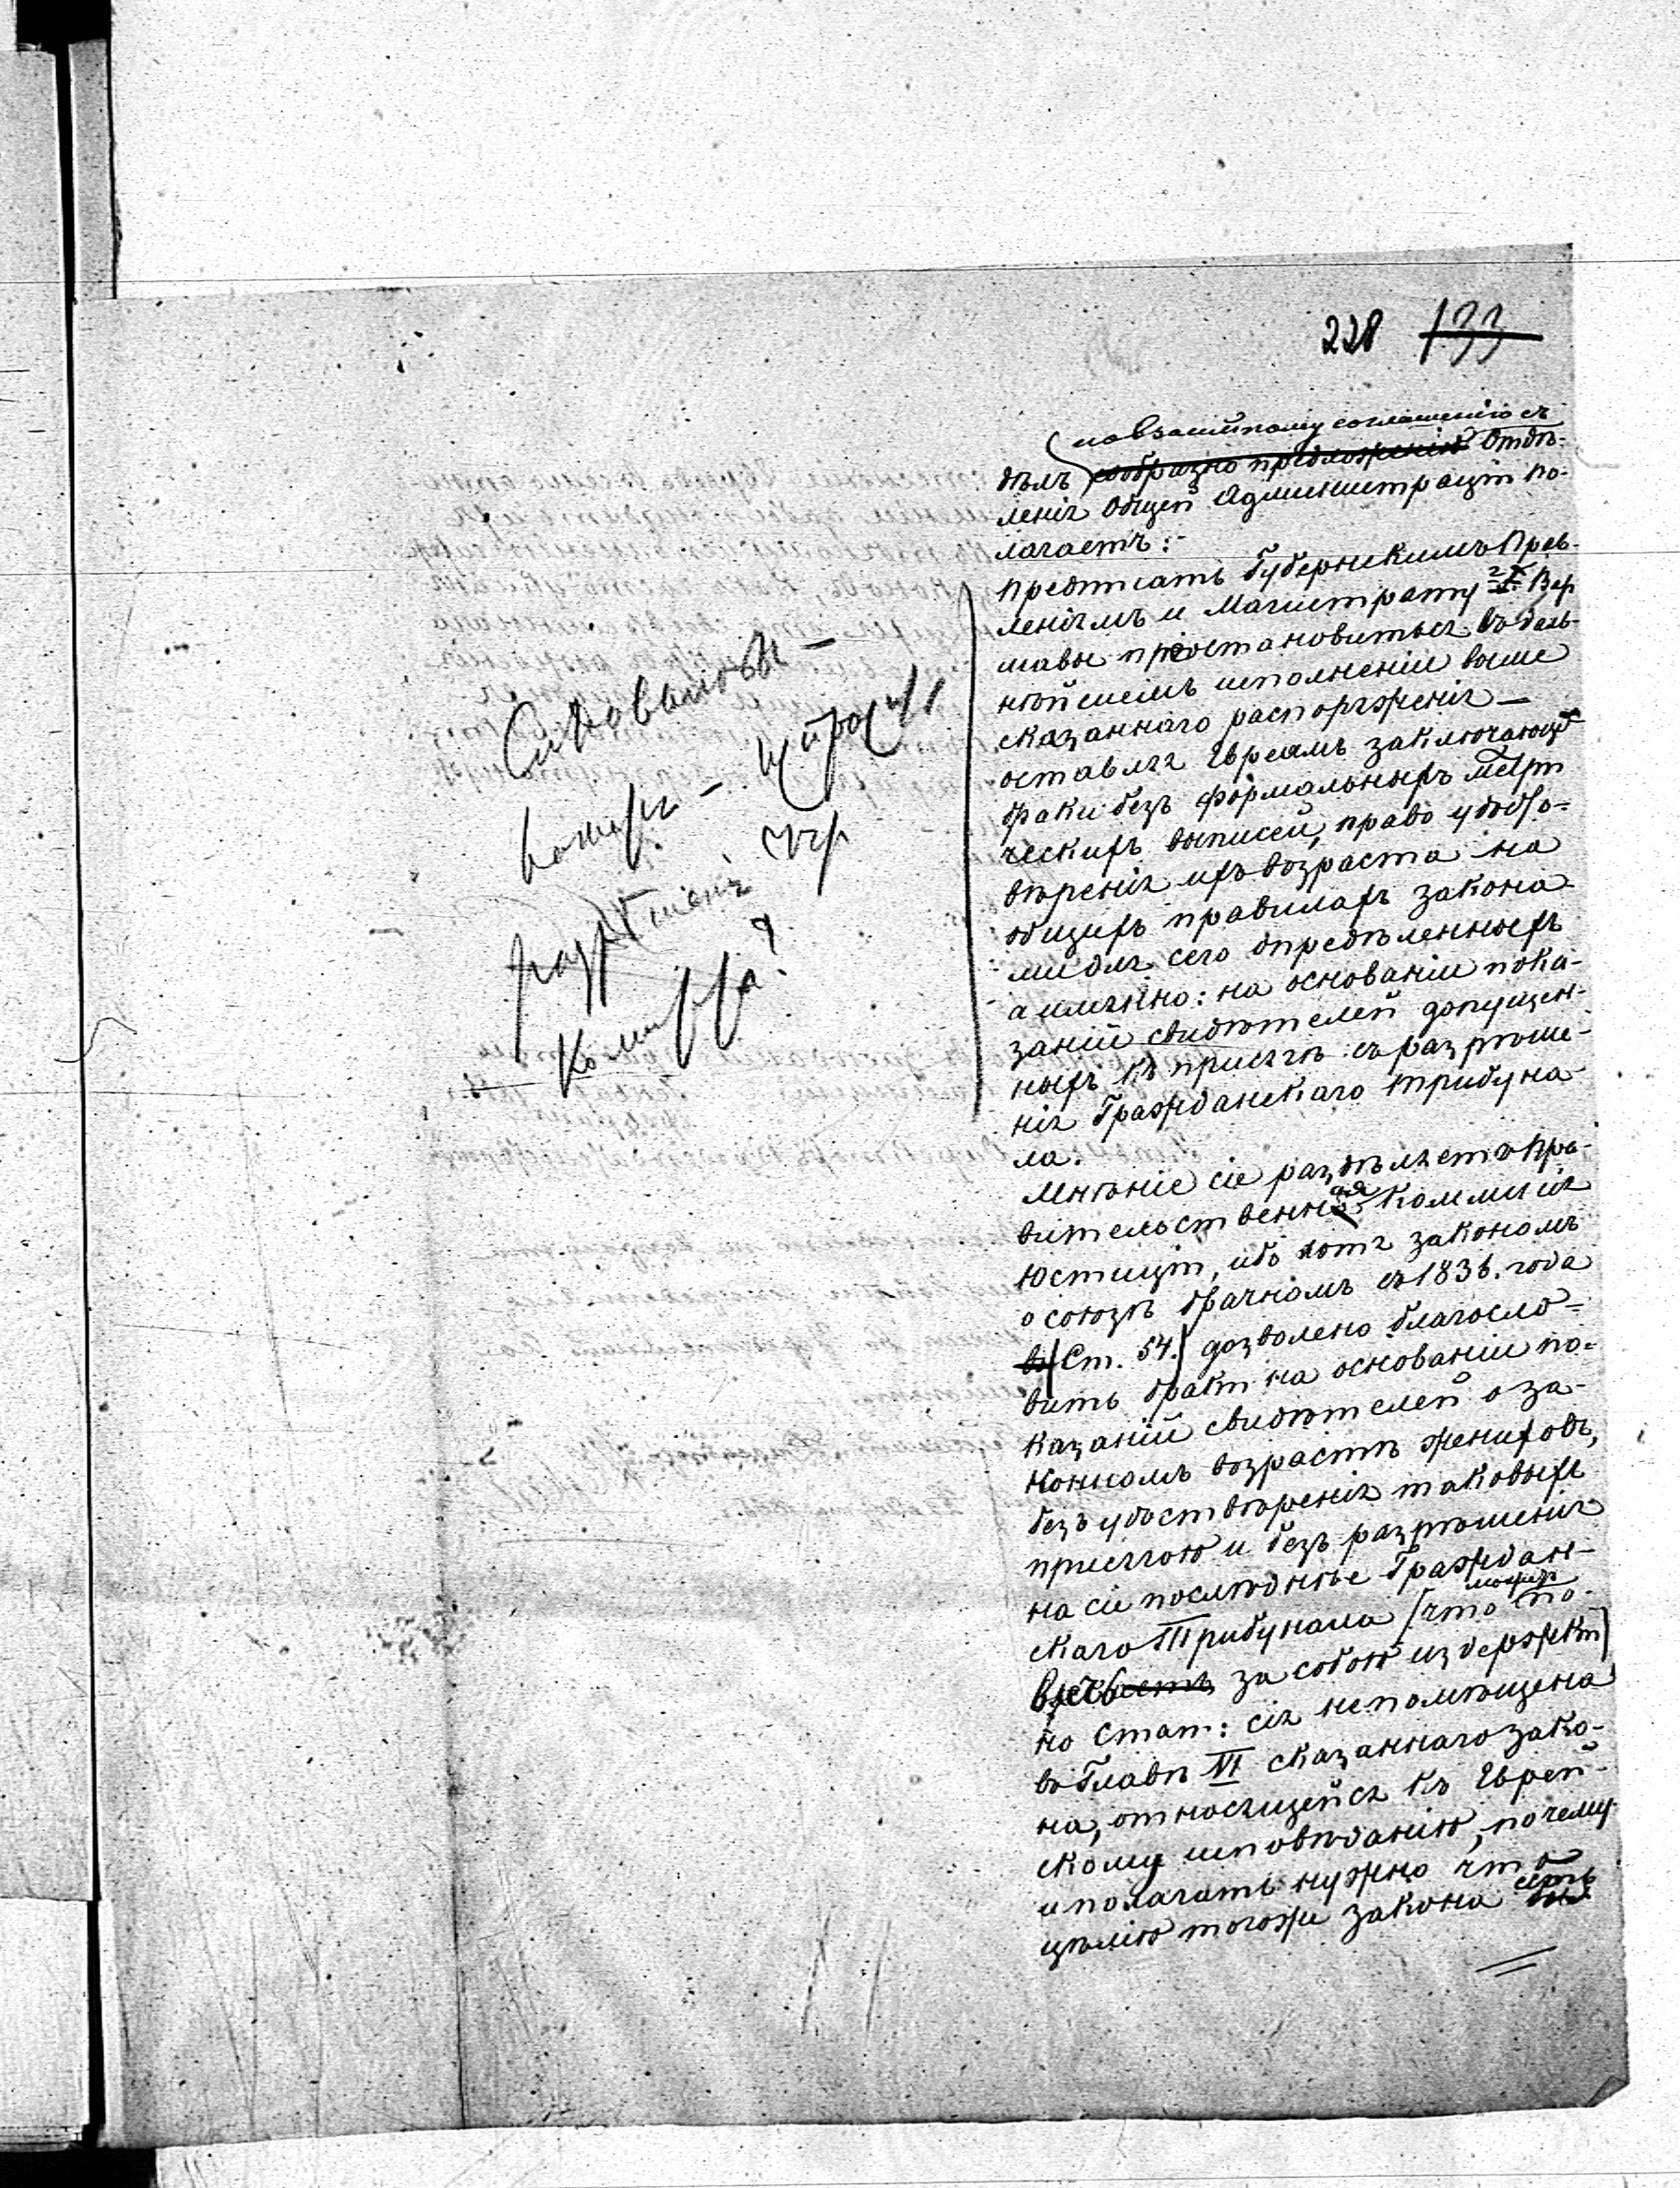 228 133
по взаимному соглашенію съ
дѣлъ сообразно предложенію Отдѣ-
ленія Общей Администраціи по-
лагаетъ:-
предписать Губернскимъ Прав-
леніямъ и Магистрату г. Вар
шавы пріостановиться въ даль-
нѣйшемъ исполненіи выше
сказаннаго распоряженія —
оставляя Евреямъ заключающ
браки безъ формальныхъ метри
ческихъ выписей, право удосто-
вѣренія ихъ возраста на
общихъ правилахъ закона
ми для сего опредѣленныхъ
а именно: на основаніи пока-
заній свидѣтелей допущен-
ныхъ къ присягѣ съ разрѣше-
нія Гражданскаго трибуна-
ла.
Мнѣніе сіе раздѣляетъ Пра-
вительственная Коммисія
Юстиціи, ибо хотя закономъ
о союзѣ брачномъ съ 1836. года
въ (Ст. 54.) дозволено благосло-
вить бракъ на основаніи по-
казаній свидѣтелей о за-
конномъ возрастѣ жениховъ,
безъ удоствѣренія таковыхъ
присягою и безъ разрѣшенія
на сіи послѣдніе Граждан-
скаго Трибунала (что
за собою издержки)
но Стат: сія непомѣщена
въ Главѣ VI сказаннаго зако-
на, относящейся къ Еврей-
скому исповѣданію, почему
и полагать нужно что
цѣлію тогоже закона есть
Слѣдовало бы —
разрѣшенія